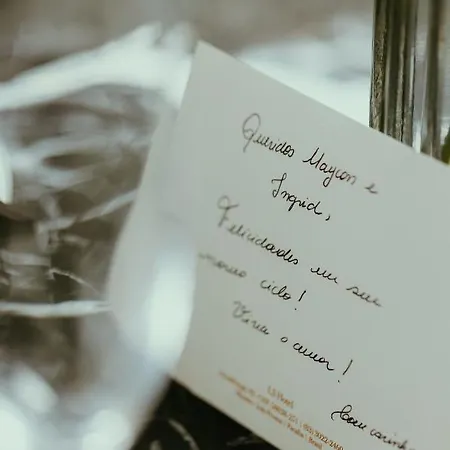 Queridos Maycon e
Ingrid,
Felicidades em sua
novo ciclo!
Viva o amor!
LS Hotel
Com carinho